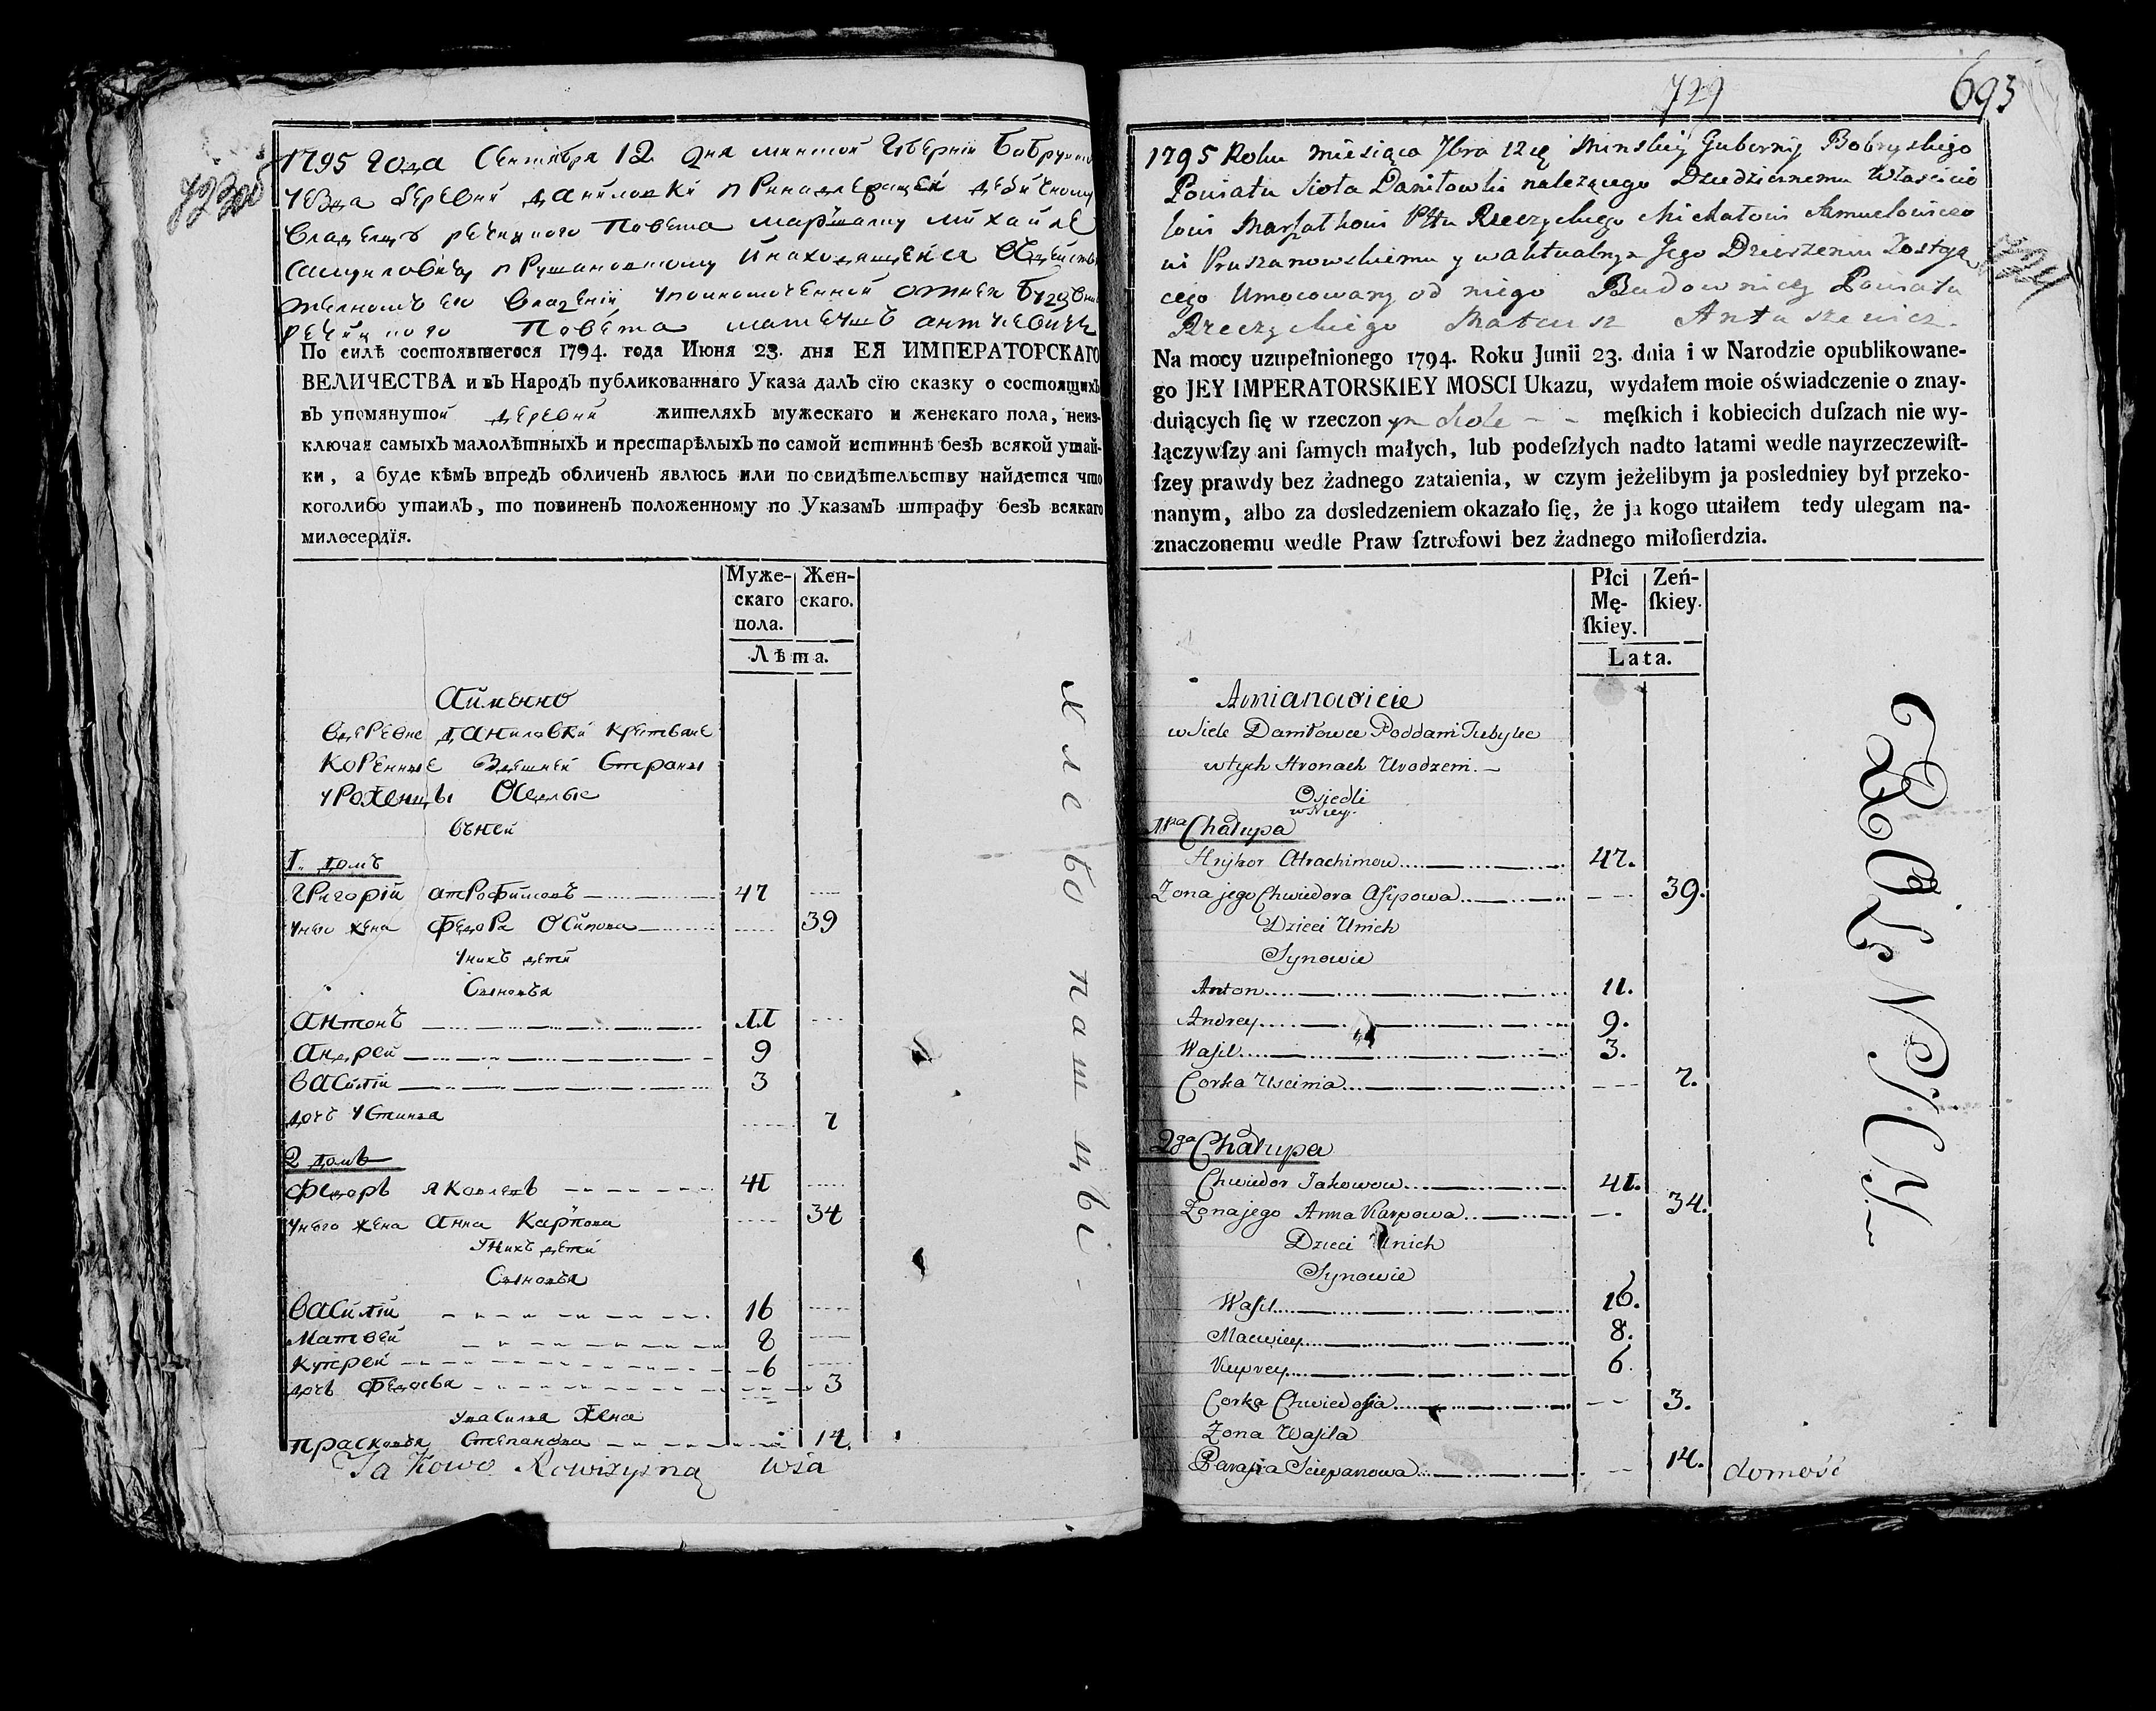 723об
1795 года Сентября 12 дня минской Губерніи Бобруйско
уезда деревни даниловки принадлежащей дедичному
владелцу речицкого повета маршалку михайле
самуиловичу прушановскому и находящейся в действи
телномъ его владеніи уполномоченной отнего
речицкого повета матеушъ антушевичь
По силѣ состоявшегося 1794. года Июня 23. дня ЕЯ ИМПЕРАТОРСКАГО
ВЕЛИЧЕСТВА и въ Народъ публикованнаго Указа далъ сїю сказку о состоящихъ
въ упомянутой деревни жителяхъ мужескаго и женскаго пола, неиз-
ключая самыхъ малолѣтныхъ и престарѣлыхъ по самой истиннѣ безъ всякой утай-
ки, а буде кѣмъ впредь обличенъ явлюсь или по свидѣтельству найдется что
коголибо утаилъ, то повиненъ положенному по Указамъ штрафу безъ всякаго
милосердїя.
Муже-
скаго
пола.
Жен-
скаго.
Лѣта.
А имянно
вдеревне даниловки крестьяне
коренные здешней страны
уроженцы оседлые
въней
1. домъ
григорій атрофимовъ 47
унего жена федора осипова 39
унихъ дети
Сыновья
антонъ 11
андрей 9
василій 3
дочь устинья 7
2 домъ
федоръ яковлевъ 41
унего жена анна карпова 34
унихъ дети
Сыновья
василій 16
матвей 8
купрей 6
дочь федосья 3
увасилья жена
прасковья степанова 14.
Ta kowo Rewizyyna wia
хлебопашцы
729
693
724
1795 Roku miesiąca 7bra 12 Minskiey Guberniy Bobruyskiego
Powiatu Sioła Daniłowki należącego Dziedzicznemu Właścicie
lowi Marszałkowi Pttu Rzeczyckiego Michałowi Samuelowiczo
wi Pruszanowskiemu y w aktualnym Jego Dzierżeniu Zostaią
cego Umocowany od niego Budowniczy Powiatu
Rzeczyckiego Mateusz Antuszewicz.
Na mocy uzupełnionego 1794. Roku Junii 23. dnia i w Narodzie opublikowane-
go JEY IMPERATORSKIEY MOSCI Ukazu, wydałem moie oświadczenie o znay-
duiących ſię w rzeczon ym Siole męſkich i kobiecich duſzach nie wy-
łączywſzy ani ſamych małych, lub podeſzłych nadto latami wedle nayrzeczewiſt-
ſzey prawdy bez żadnego zataienia, w czym jeżelibym ja posledniey był przeko-
nanym, albo za dosledzeniem okazało ſię, że ja kogo utaiłem tedy ulegam na-
znaczonemu wedle Praw ſztrofowi bez żadnego miłoſierdzia.
Płci
Mę-
ſkiey.
Zeń-
ſkiey.
Lata.
Amianowicie
w Siele Daniłowce Poddani Tubylce
w tych Stronach Urodzeni.
Osiedli
w Niey.
1sza Chałupa
Hryhor Atrachimow 47.
Zona jego Chwiedora Asipowa 39.
Dzieci Unich
Synowie
Anton 11.
Andrey 9.
Wasil 3.
Corka Uscinia 7.
2ga Chałupa
Chwiedor Jakowow 41.
Zona jego Anna Karpowa 34.
Dzieci Unich
Synowie
Wasil 16.
Maciwiey 8.
Kuprey 6.
Corka Chwiedosia 3.
Zona Wasila
Parasia Sciepanowa 14.
domość
ROLNICY